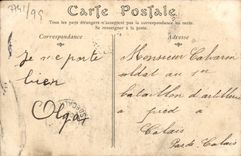 Carte Postale
Tous les pays étrangers n'acceptent pas la correspondance au recto.
Se renseigner à la poste.
Correspondance
Adresse
Je me porte
bien
Olga
Monsieur Cabaren
soldat au 1er
bataillon d'artillerie
à pied à
Calais
Pas de Calais